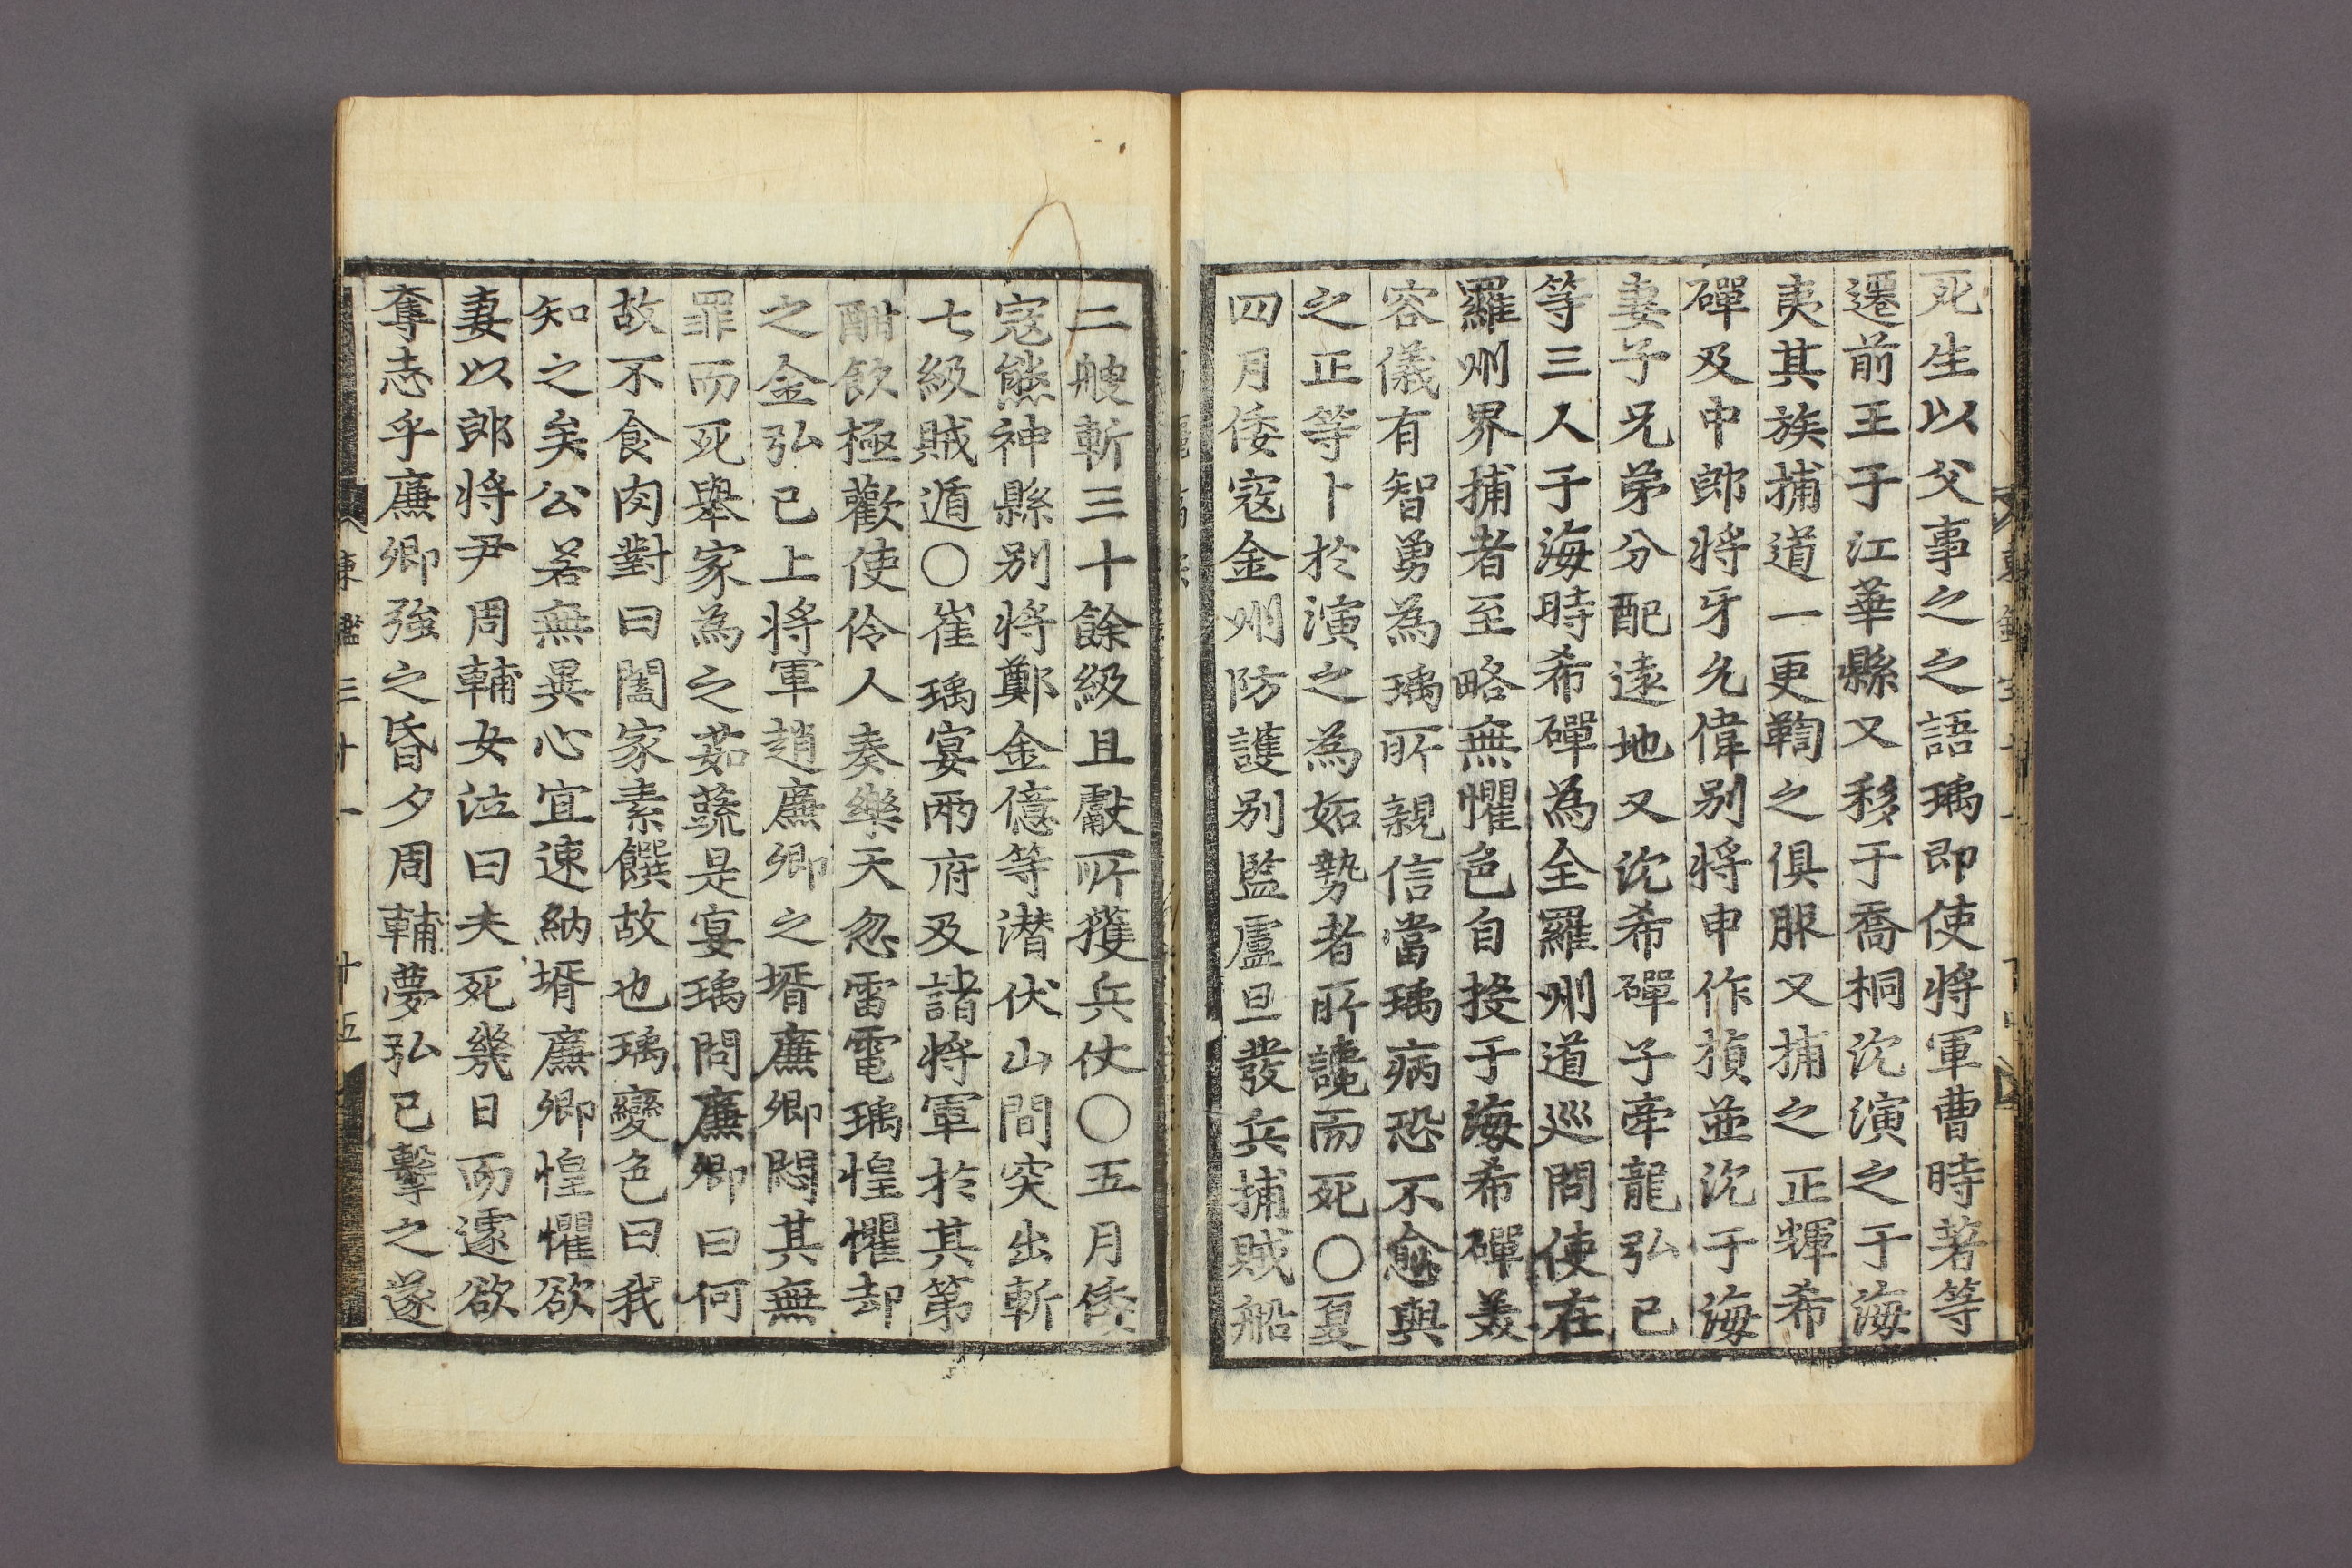 死生以父事之之語瑀即使將軍曹時著等
遷前王于江華縣又移于喬桐沈演之于海
夷其族捕道一更鞫之俱服又捕之正輝希
磾及中郎將牙允偉别將申作楨並沈于海
妻子兄弟分配遠地又沈希磾子牽龍弘已
等三人于海時希磾為全羅州道巡問使在
羅州界捕者至略無懼色自投于海希磾美
容儀有智勇為瑀所親信當瑀病恐不愈與
之正等卜於演之為妬勢者所讒而死○夏
四月倭寇金州防護别監盧旦發兵捕賊船
二艘斬三十餘級且獻所獲兵仗○五月倭
寇熊神縣别將鄭金億等潛伏山間突出斬
七級賊遁○崔瑀宴兩府及諸將軍於其第
酣飲極歡使伶人奏樂天忽雷電瑀惶懼却
之金弘已上將軍趙廉卿之壻廉卿悶其無
罪而死舉家為之茹蔬是宴瑀問廉卿曰何
故不食肉對曰闔家素饌故也瑀變色曰我
知之矣公若無異心宜速納壻廉卿惶懼欲
妻以郎將尹周輔女泣曰夫死幾日而遽欲
奪志乎廉卿強之昏夕周輔夢弘已擊之遂
東鑑三十一 十五